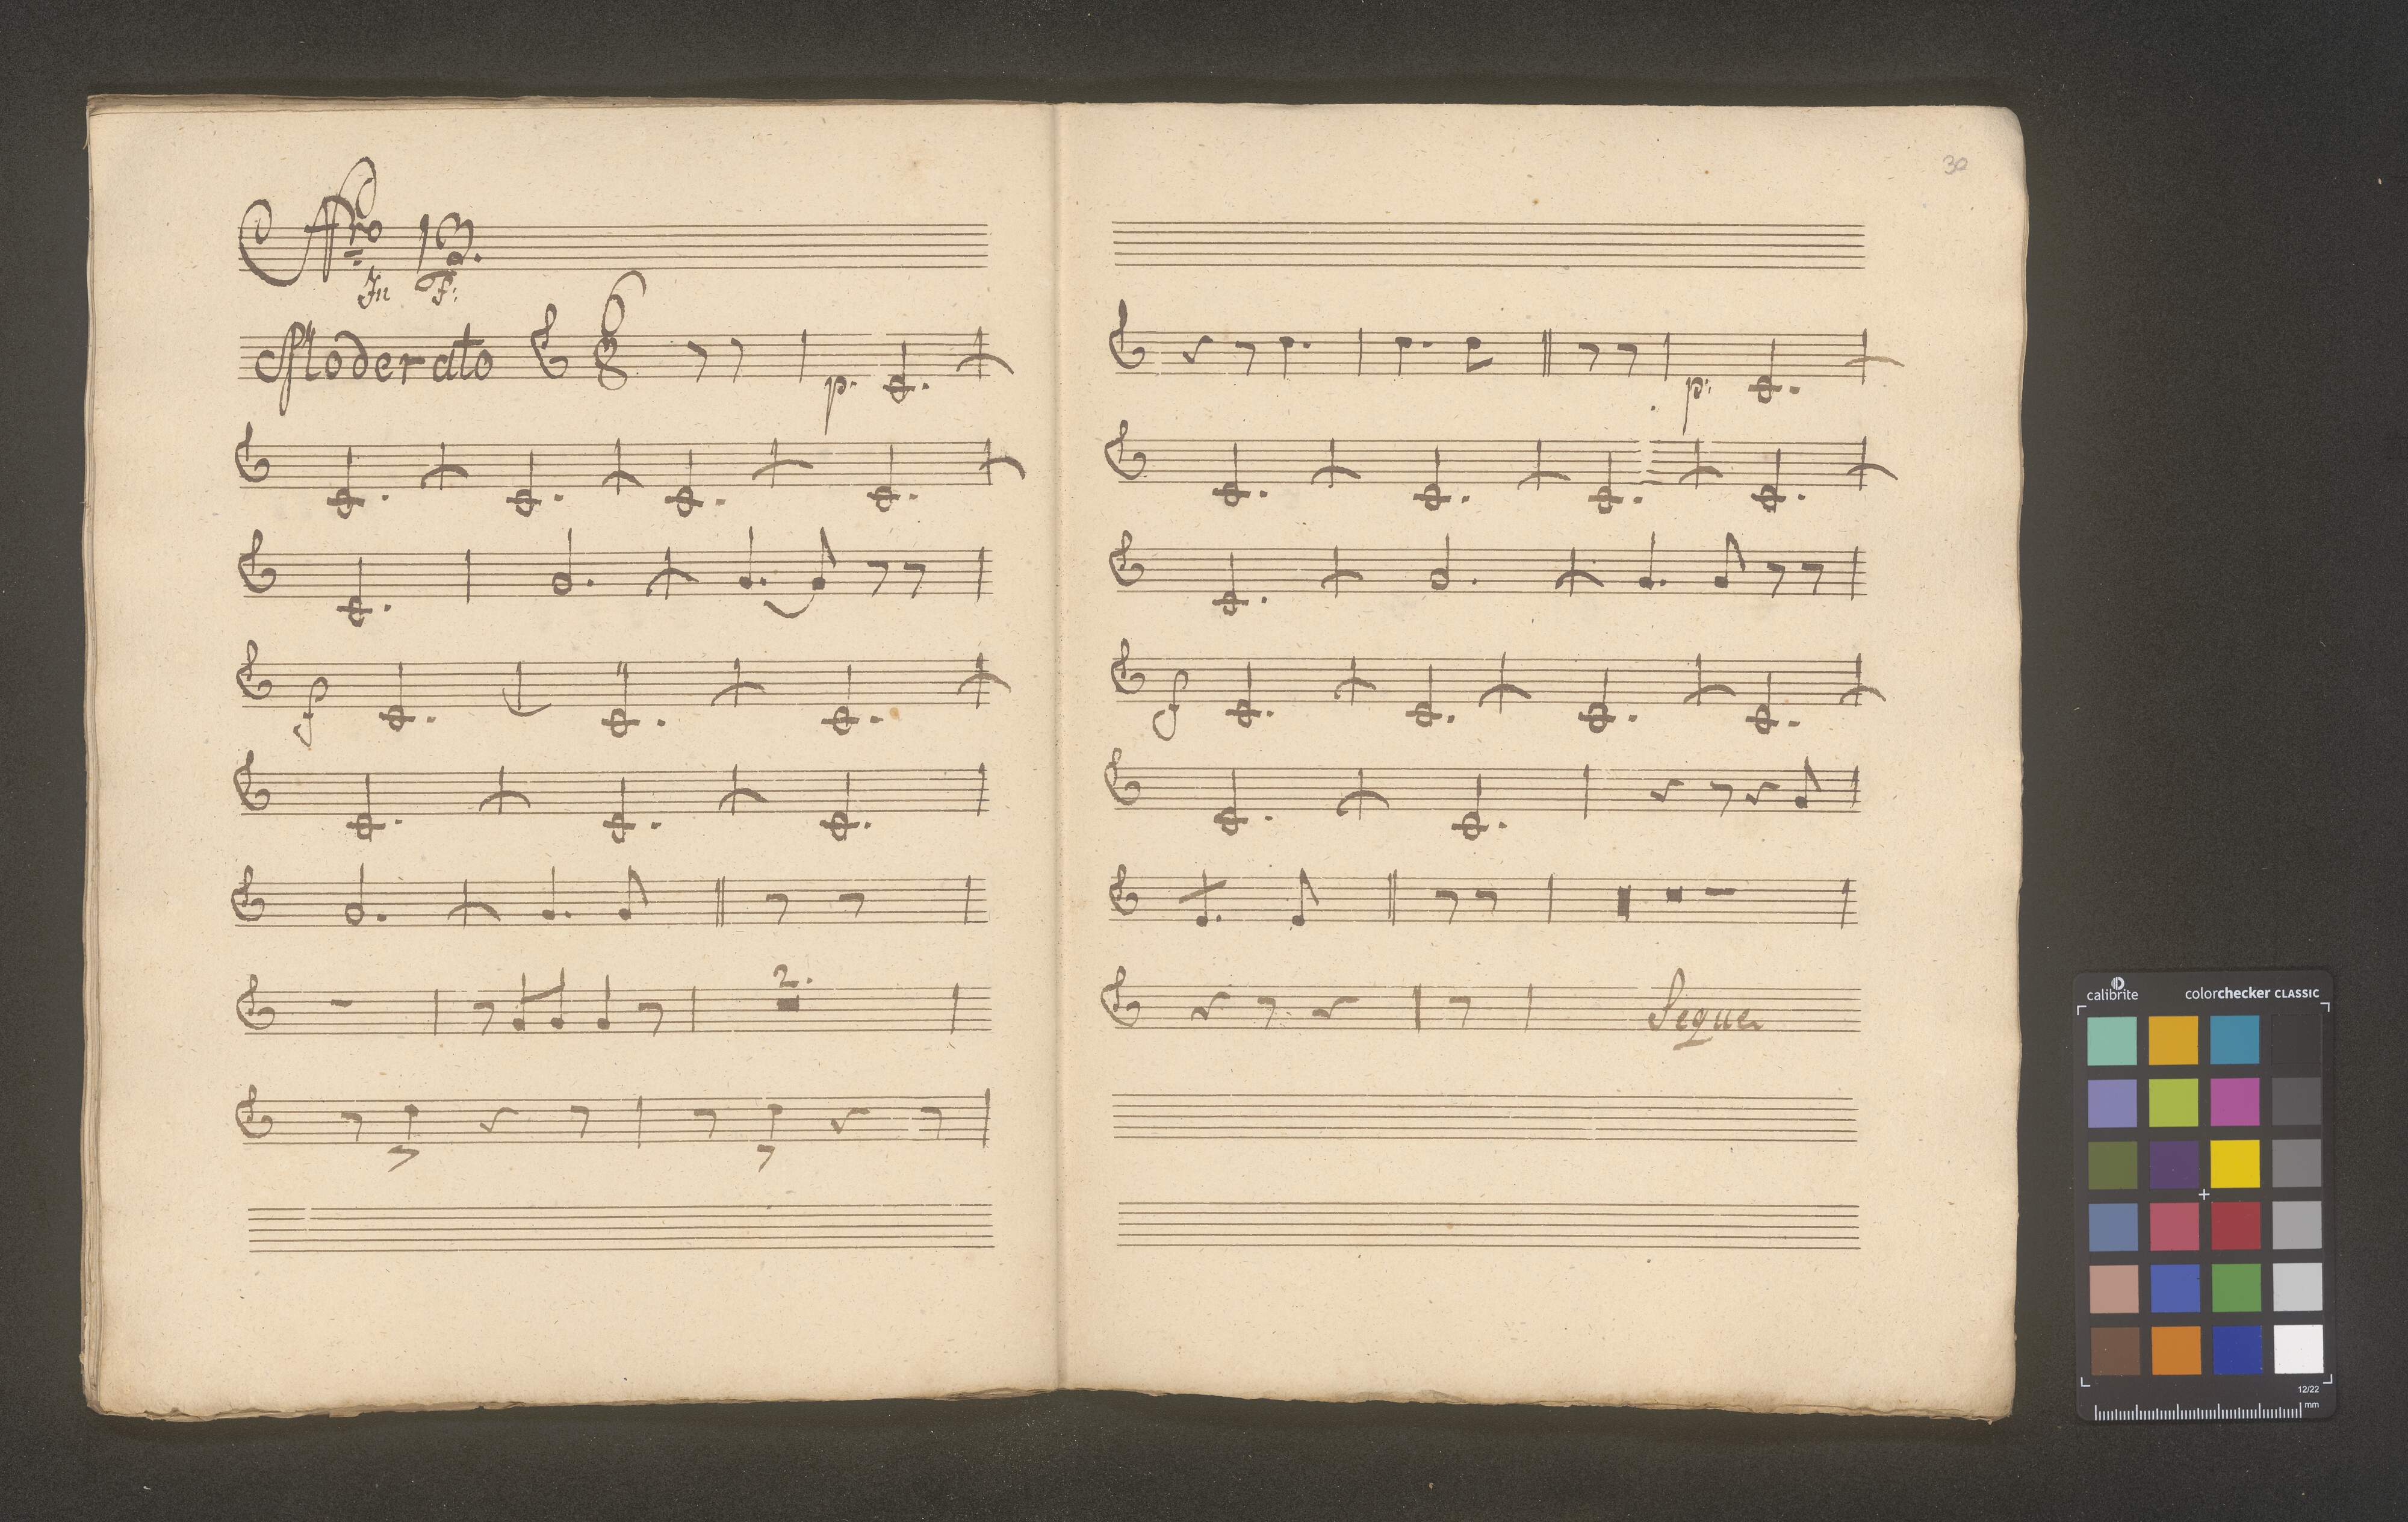 Nro 13.
In F:
Moderato 6 8
p.
f
2.
30
p:
f
Segue
calibrite colorchecker CLASSIC
12/22
mm